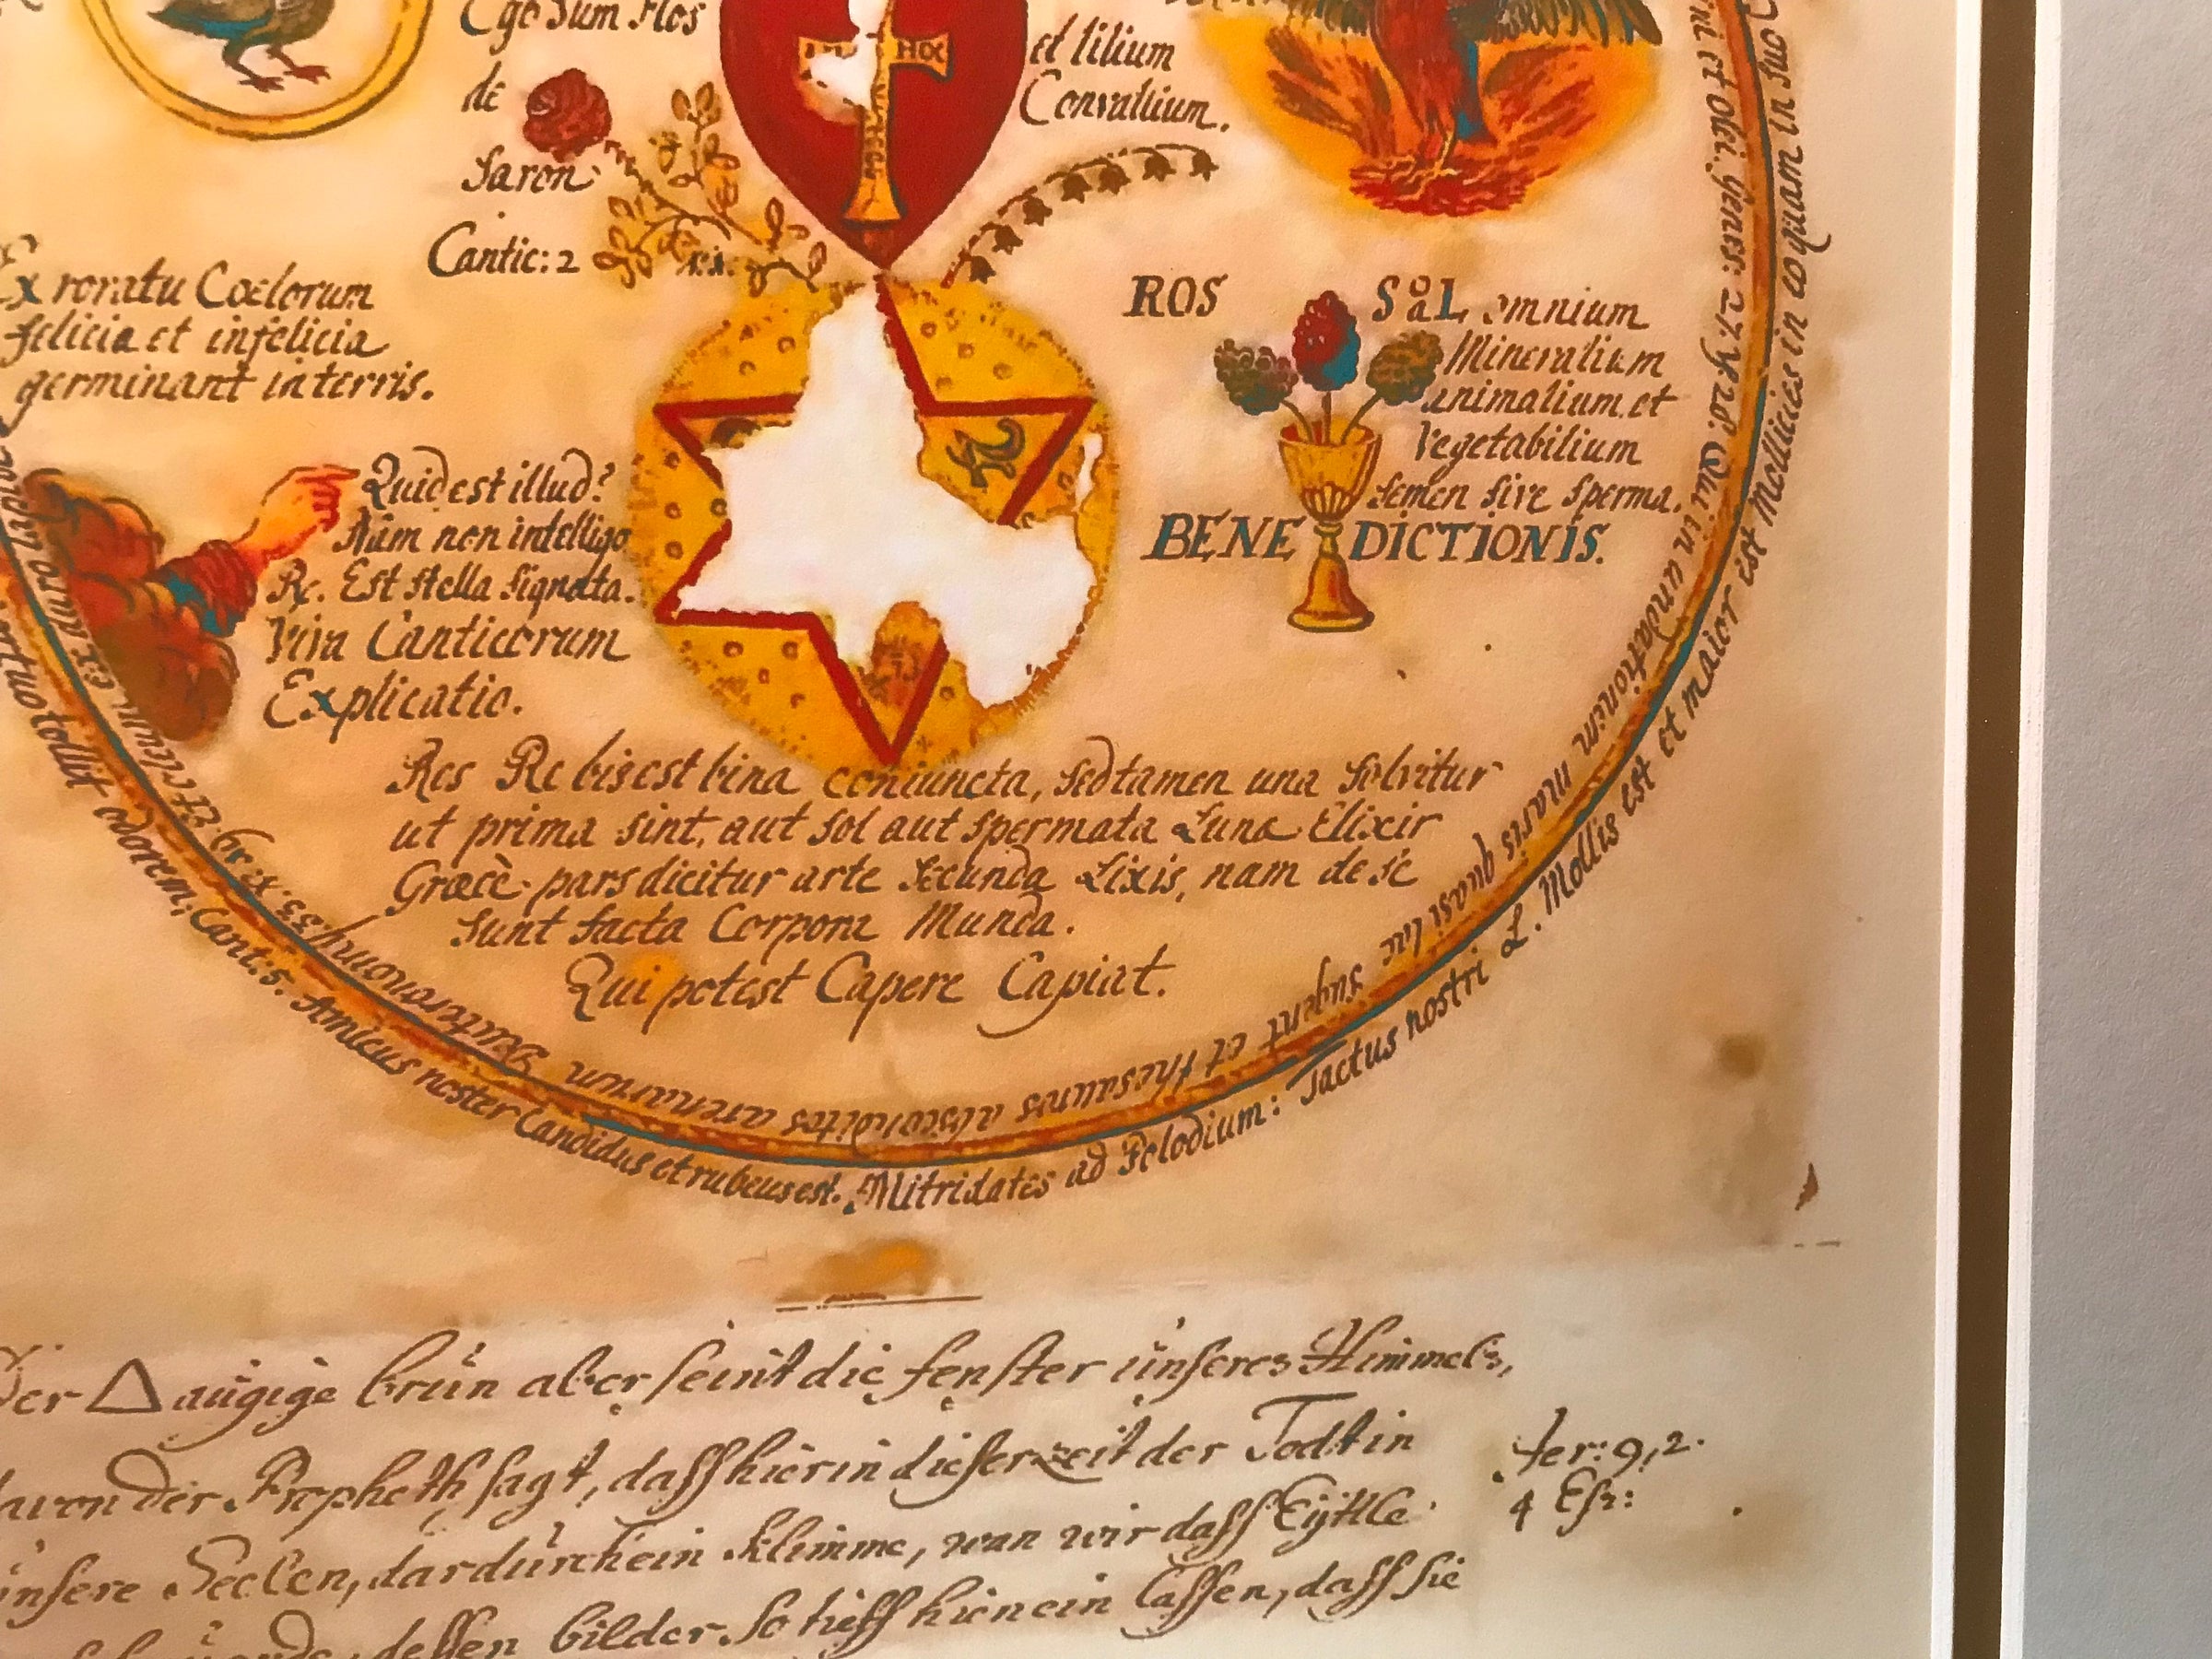 Ego Sum Flos
de
Saron
Cantic: 2
et lilium
Convallium.
Ex roratu Cœlorum
felicia et infelicia
germinant in terris.
ROS
SoaL omnium
Mineralium
animalium et
Vegetabilium
semen sive sperma.
BENE DICTIONIS.
Quid est illud?
Nam non intelligo
Rc. Est stella signata.
Viva Canticorum
Explicatio.
Res Rebis est bina coniuncta, sed tamen una solvitur
ut prima sint, aut sol aut spermata Luna Elixir
Græcè pars dicitur arte secunda Lixis, nam de se
sunt facta Corpora Munda.
Qui potest Capere Capiat.
et olei. Genes: 27 V 28. Qui in undationem maris quasi lac sugent et thesauros absconditos arenarum
odorem; Cant: 5. Amicus noster Candidus et rubeus est. Mitridates ad Polodium: Tactus nostri L. Mollis est et maior est Mollicies in eo quam in suo
Der △ augige brun aber seint die fenster unseres Himmels,
davon der Propheth sagt, dass hier in dieser zeit der Todt in
unsere Seelen, dardurch ein klimme, wan wir dass Eytle
dessen bilder so tieff hienein lassen, dass sie
Jer: 9, 2.
4 Esr: